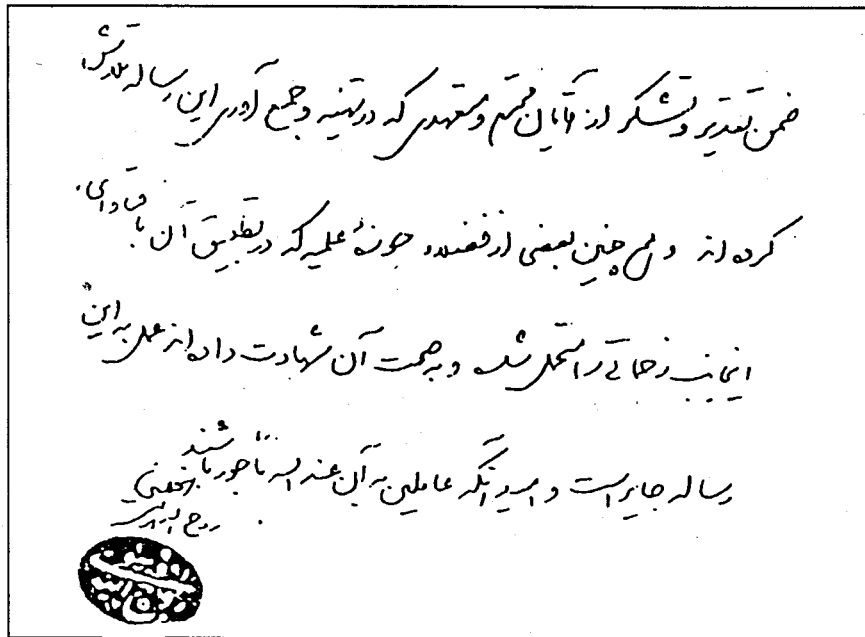 ضمن تقدیر و تشکر از آقایان محترم و متعهدی که در تهیه و جمع آوری این رساله تلاش
کرده اند و هم چنین بعضی از فضلاء حوزهٔ علمیه که در تطبیق آن با فتاوای
اینجانب زحماتی را متحمل شده و به صحت آن شهادت داده اند عمل به این
رساله جایز است و امید آنکه عاملین به آن عند الله مأجور باشند
روح الله الموسوی الخمینی